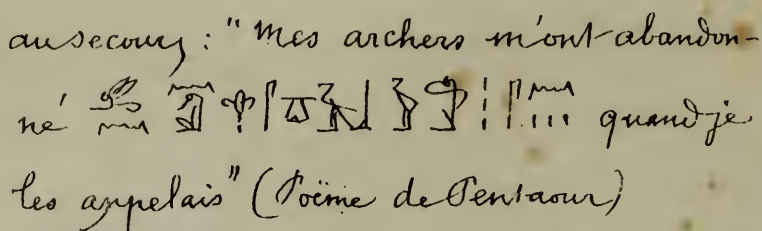 au secours : "Mes archers m'ont abandon-
né quand je
les appelais" (Poëme de Pentaour)